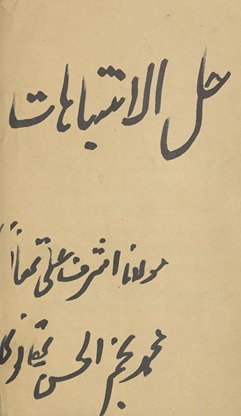 حل الانتباہات
مولانا اشرف علی تھا
محمد نجم الحسن تھانو